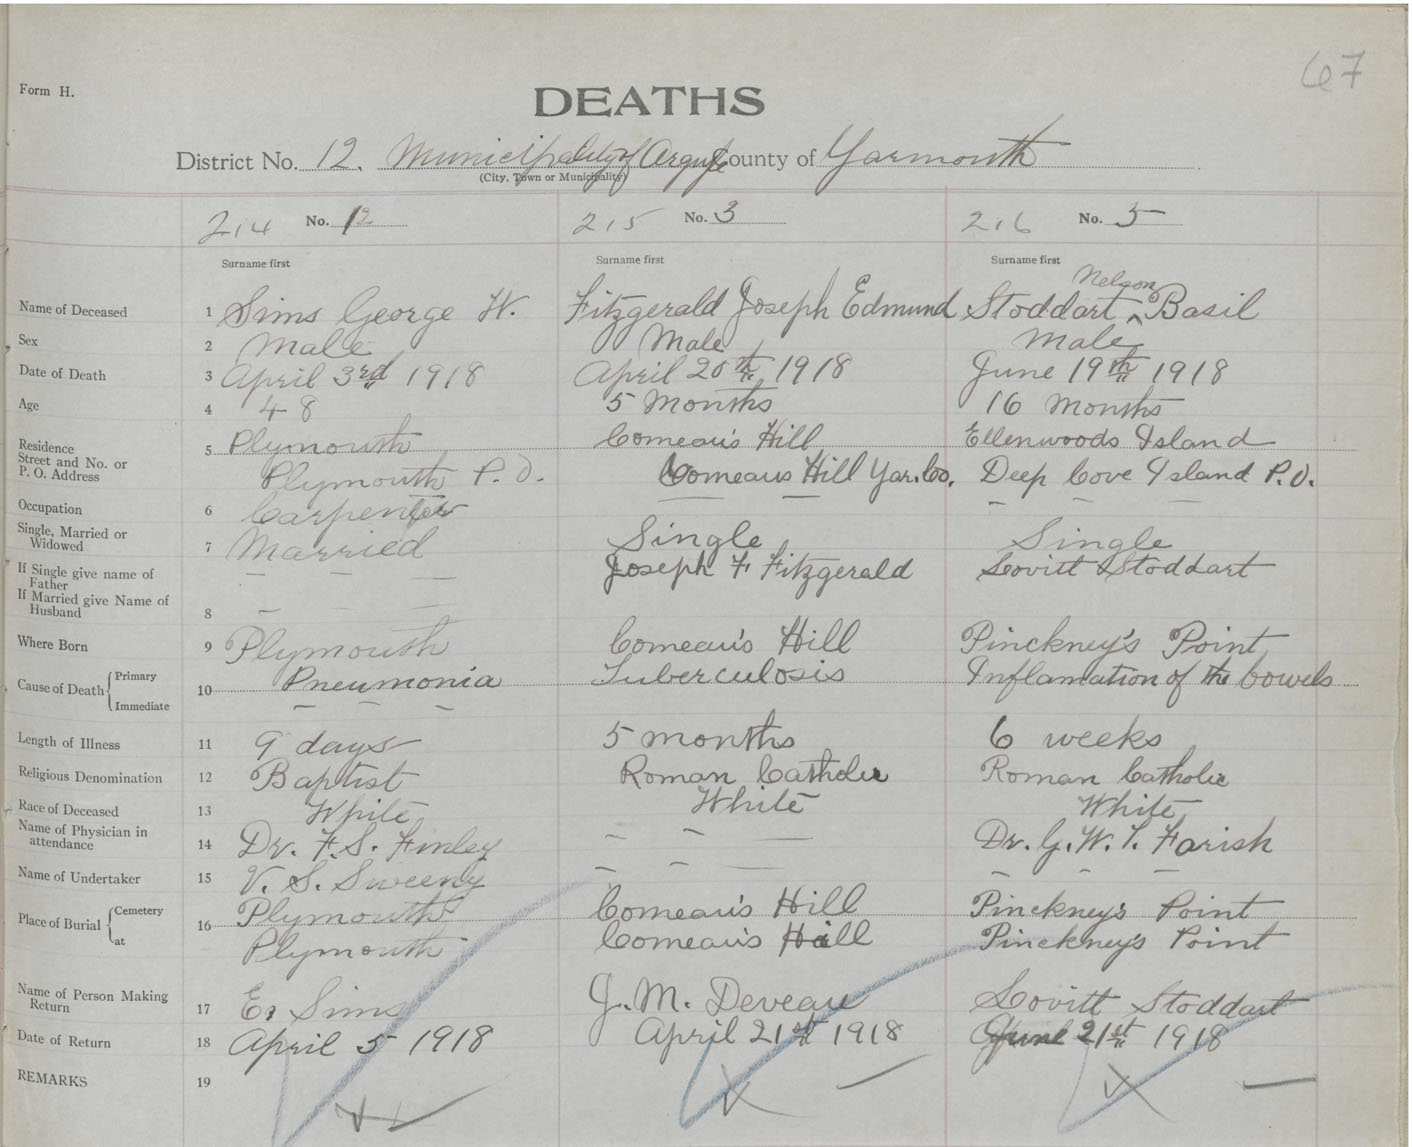 67
Form H.
DEATHS
District No. 12. Municipality of Argyle County of Yarmouth
(City, Town or Municipality)
214 No. 12 215 No. 3 216 No. 5
Surname first Surname first Surname first
Nelson
Name of Deceased 1 Sims George W. Fitzgerald Joseph Edmund Stoddart ^ Basil
Sex 2 Male Male Male
Date of Death 3 April 3rd 1918 April 20th 1918 June 19th 1918
Age 4 48 5 Months 16 Months
Residence 5 Plymouth Comeau's Hill Ellenwoods Island
Street and No. or
P. O. Address Plymouth P. O. Comeaus Hill Yar. Co. Deep Cove Island P.O.
Occupation 6 Carpenter — — — — —
Single, Married or
Widowed 7 Married Single Single
If Single give name of
Father — — — Joseph F Fitzgerald Lovitt Stoddart
If Married give Name of
Husband 8 — — —
Where Born 9 Plymouth Comeau's Hill Pinckney's Point
Cause of Death { Primary 10 Pneumonia Tuberculosis Inflamation of the bowels
Immediate — — —
Length of Illness 11 9 days 5 months 6 weeks
Religious Denomination 12 Baptist Roman Catholic Roman Catholic
Race of Deceased 13 White White White
Name of Physician in
attendance 14 Dr. F. S. Finley — — — Dr. G. W. T. Farish
Name of Undertaker 15 V. S. Sweeny — — — — — —
Place of Burial { Cemetery 16 Plymouth Comeau's Hill Pinckney's Point
at Plymouth Comeau's Hill Pinckney's Point
Name of Person Making
Return 17 E. Sims J. M. Deveau Lovitt Stoddart
Date of Return 18 April 5 1918 April 21st 1918 June 21st 1918
REMARKS 19